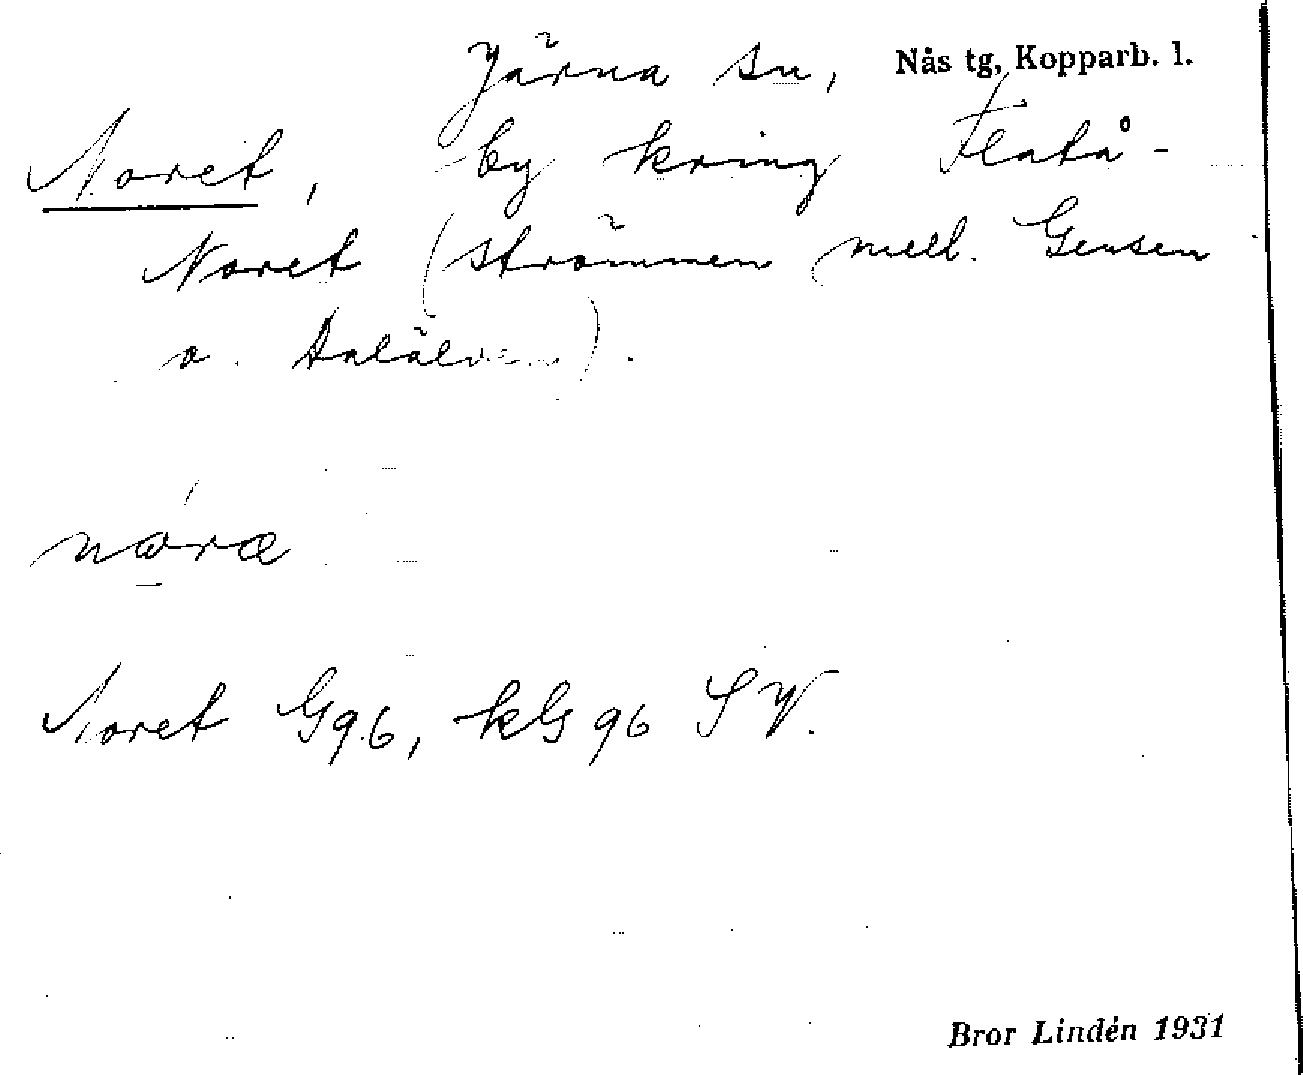 Järna sn, Nås tg, Kopparb. l.
Noret, by kring Flatå-
Noret (strömmen mell. Gensen
o. Dalälven).
nóræ
Noret G96, kG 96 SV.
Bror Lindén 1931